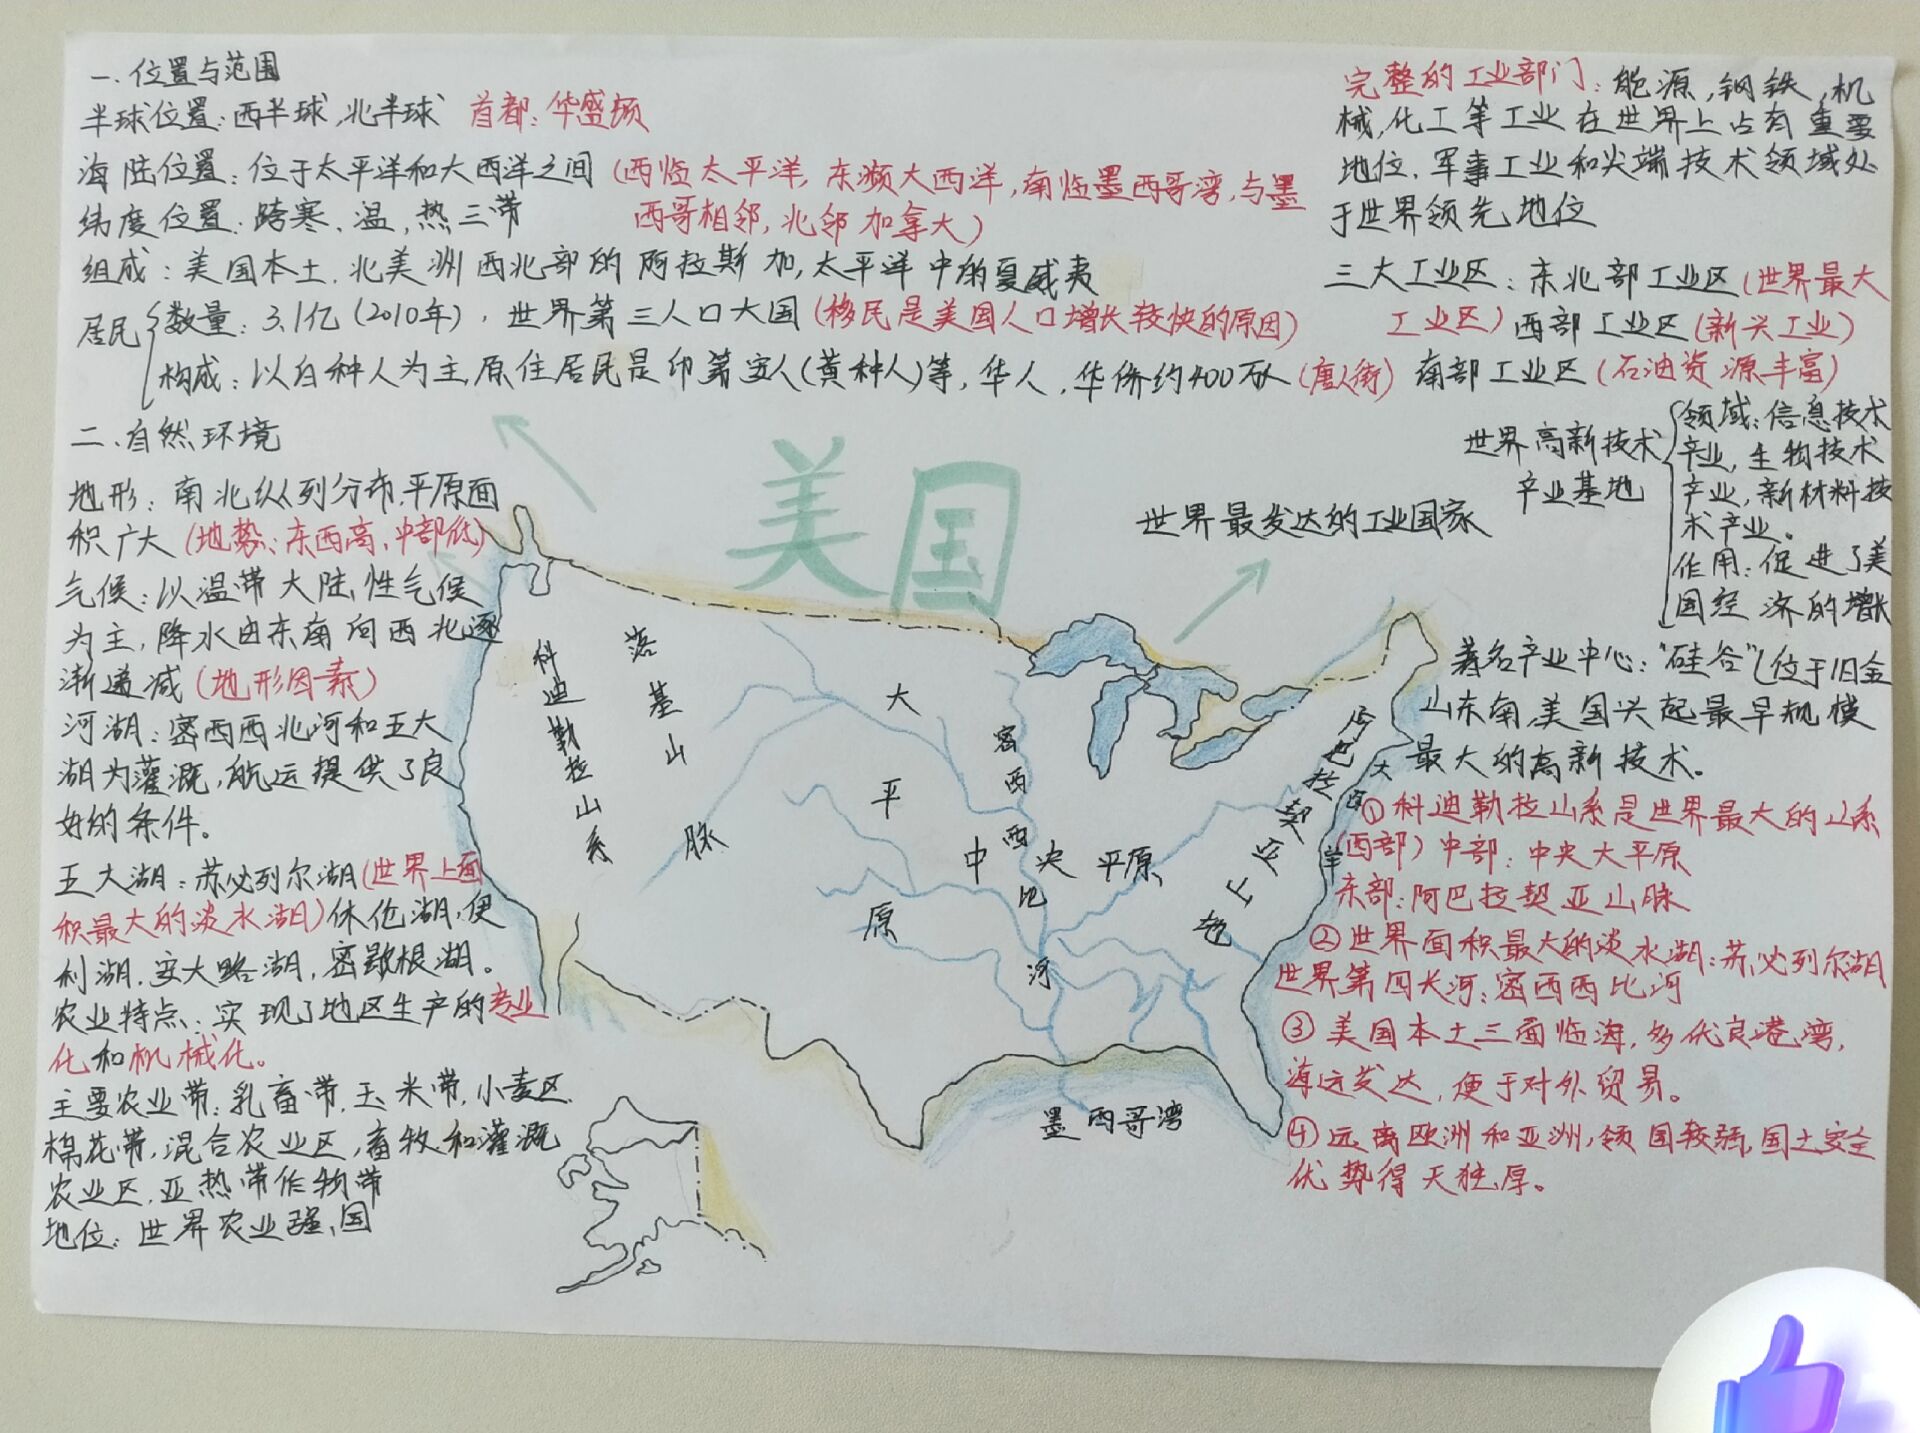 一.位置与范围
半球位置:西半球,北半球 首都:华盛顿
海陆位置:位于太平洋和大西洋之间(西临太平洋,东濒大西洋,南临墨西哥湾,与墨
西哥相邻,北邻加拿大)
纬度位置:跨寒、温,热三带
组成:美国本土.北美洲西北部的阿拉斯加,太平洋中的夏威夷
居民
数量:3.1亿(2010年),世界第三人口大国(移民是美国人口增长较快的原因)
构成:以白种人为主,原住居民是印第安人(黄种人)等,华人,华侨约400万人(唐人街)
二.自然环境
地形:南北纵列分布,平原面
积广大(地势:东西高、中部低)
气候:以温带大陆性气候
为主,降水由东南向西北逐
渐递减(地形因素)
河湖:密西西北河和五大
湖为灌溉,航运提供了良
好的条件。
五大湖:苏必列尔湖(世界上面
积最大的淡水湖)休伦湖,伊
利湖.安大略湖,密歇根湖。
农业特点:实现了地区生产的专业
化和机械化。
主要农业带:乳畜带,玉米带,小麦区
棉花带,混合农业区,畜牧和灌溉
农业区,亚热带作物带
地位:世界农业强国
美国
科迪勒拉山系
落基山脉
大平原
密西西比河
中央平原
阿巴拉契亚山
大西洋
墨西哥湾
完整的工业部门:能源,钢铁,机
械,化工等工业在世界上占有重要
地位,军事工业和尖端技术领域处
于世界领先地位
三大工业区:东北部工业区(世界最大
工业区)西部工业区(新兴工业)
南部工业区(石油资源丰富)
世界最发达的工业国家
世界高新技术
产业基地
领域:信息技术
产业,生物技术
产业,新材料技
术产业。
作用:促进了美
国经济的增长
著名产业中心:"硅谷"(位于旧金
山东南,美国兴起最早规模
最大的高新技术。
①科迪勒拉山系是世界最大的山系
(西部)中部:中央大平原
东部:阿巴拉契亚山脉
②世界面积最大的淡水湖:苏必列尔湖
世界第四长河:密西西比河
③美国本土三面临海,多优良港湾,
海运发达,便于对外贸易。
④远离欧洲和亚洲,领国较弱,国土安全
优势得天独厚。